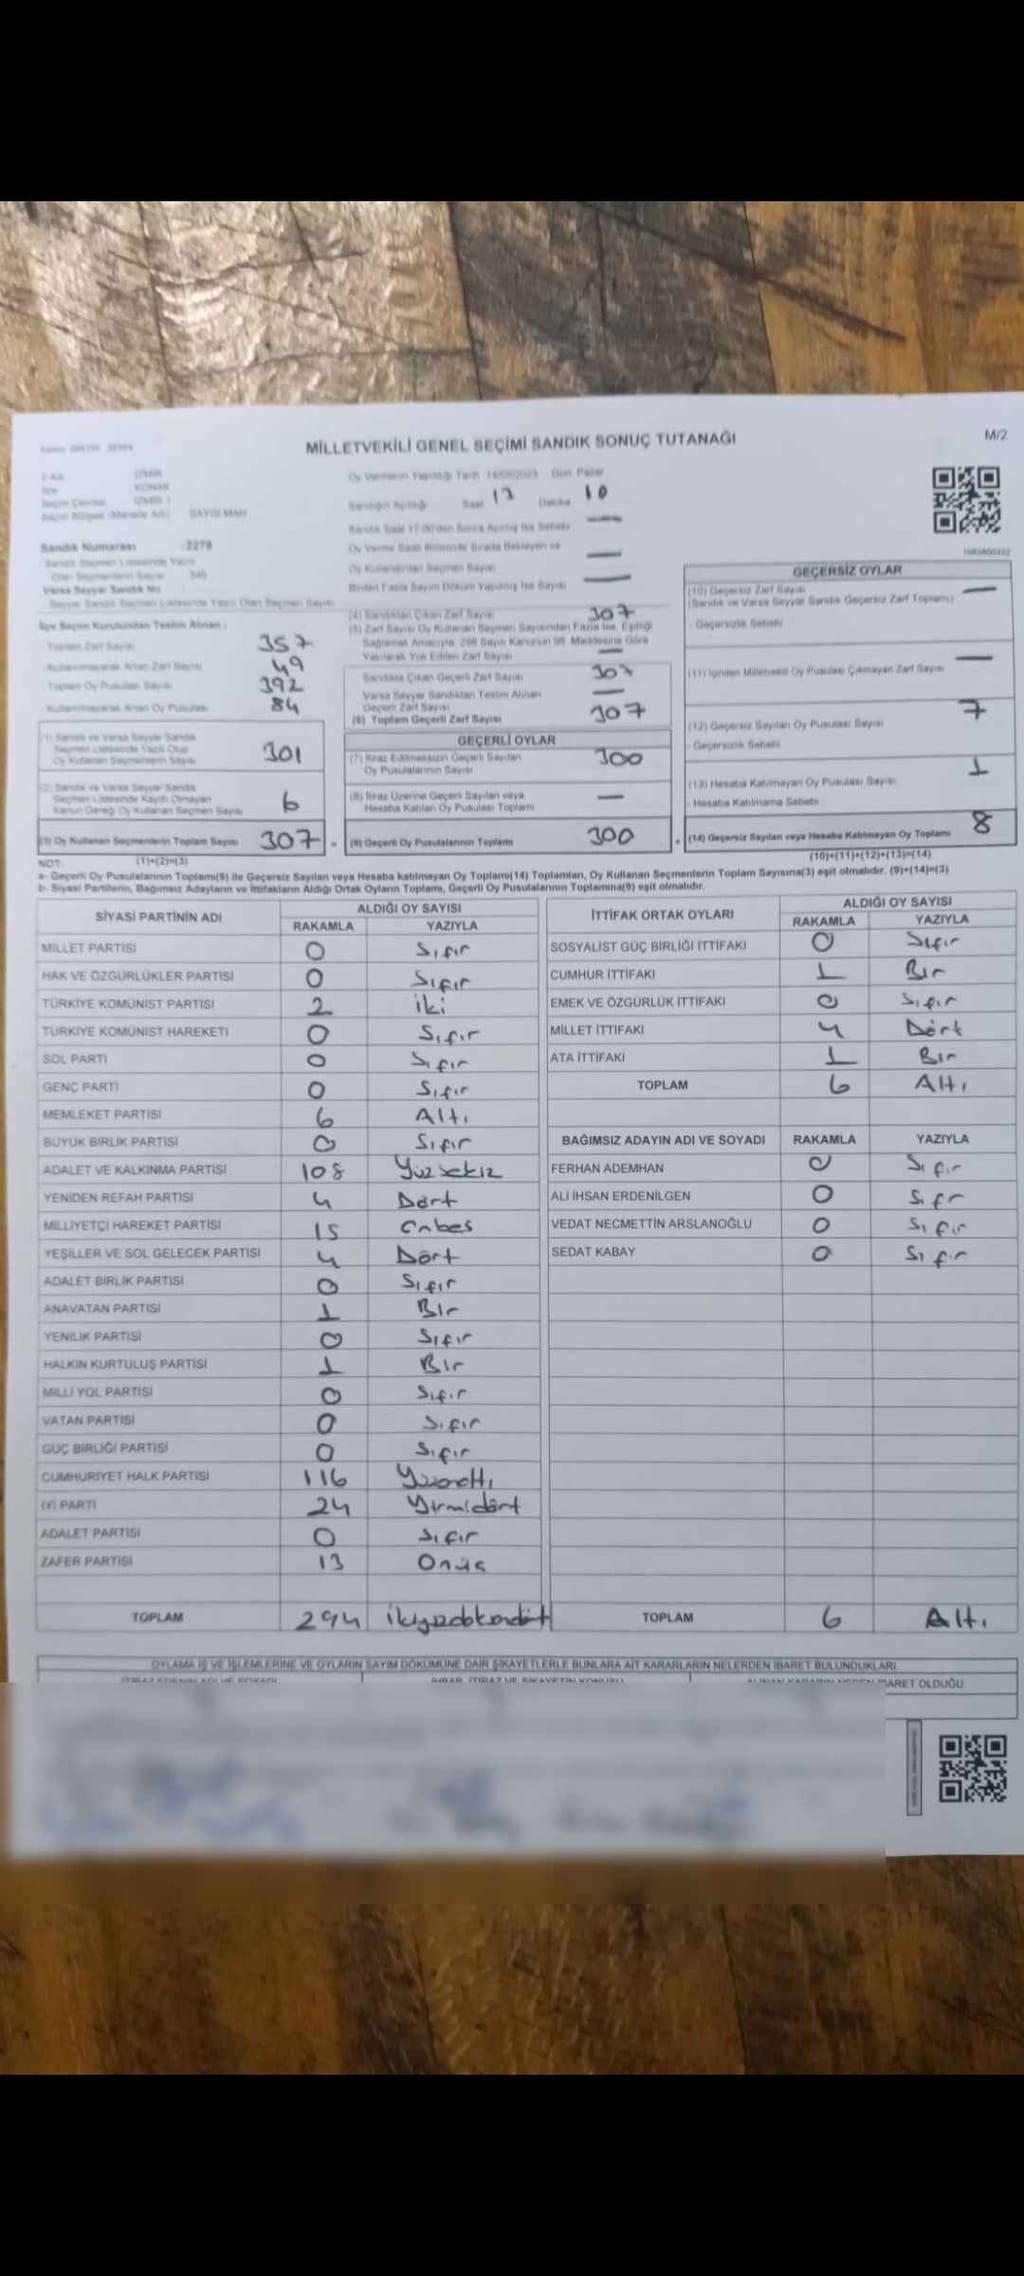 MİLLETVEKİLİ GENEL SEÇİMİ SANDIK SONUÇ TUTANAĞI
M/2
İZMİR
KONAK
İZMİR-1
Oy Vermenin Yapıldığı Tarih 14/05/2023 Gün Pazar
Sandığın Açıldığı Saat 17 Dakika 10
Sandık Saat 17:00'den Sonra Açılmış İse Sebebi —
Sandık Numarası :2278
Oy Verme Saati Bitiminde Sırada Bekleyen ve
Oy Kullandırılan Seçmen Sayısı —
Birden Fazla Sayım Döküm Yapılmış İse Sayısı —
Sandık Seçmen Listesinde Yazılı
Olan Seçmenlerin Sayısı
Varsa Seyyar Sandık No
Seyyar Sandık Seçmen Listesinde Yazılı Olan Seçmen Sayısı
İlçe Seçim Kurulundan Teslim Alınan :
- Toplam Zarf Sayısı 357
- Kullanılmayarak Artan Zarf Sayısı 49
- Toplam Oy Pusulası Sayısı 392
- Kullanılmayarak Artan Oy Pusulası 84
(4) Sandıktan Çıkan Zarf Sayısı 307
(5) Zarf Sayısı Oy Kullanan Seçmen Sayısından Fazla İse, Eşitliği
Sağlamak Amacıyla, 298 Sayılı Kanunun 98. Maddesine Göre
Yakılarak Yok Edilen Zarf Sayısı —
Sandıkta Çıkan Geçerli Zarf Sayısı 307
Varsa Seyyar Sandıktan Teslim Alınan
Geçerli Zarf Sayısı —
(6) Toplam Geçerli Zarf Sayısı 307
(1) Sandık ve Varsa Seyyar Sandık
Seçmen Listesinde Yazılı Olup
Oy Kullanan Seçmenlerin Sayısı 301
(2) Sandık ve Varsa Seyyar Sandık
Seçmen Listesinde Kayıtlı Olmayan
Kanun Gereği Oy Kullanan Seçmen Sayısı 6
(3) Oy Kullanan Seçmenlerin Toplam Sayısı 307
GEÇERLİ OYLAR
(7) İtiraz Edilmeksizin Geçerli Sayılan
Oy Pusulalarının Sayısı 300
(8) İtiraz Üzerine Geçerli Sayılan veya
Hesaba Katılan Oy Pusulası Toplamı —
(9) Geçerli Oy Pusulalarının Toplamı 300
GEÇERSİZ OYLAR
(10) Geçersiz Zarf Sayısı —
(Sandık ve Varsa Seyyar Sandık Geçersiz Zarf Toplamı)
- Geçersizlik Sebebi
(11) İçinden Milletvekili Oy Pusulası Çıkmayan Zarf Sayısı —
(12) Geçersiz Sayılan Oy Pusulası Sayısı 7
- Geçersizlik Sebebi
(13) Hesaba Katılmayan Oy Pusulası Sayısı 1
- Hesaba Katılmama Sebebi
(14) Geçersiz Sayılan veya Hesaba Katılmayan Oy Toplamı 8
NOT: (1)+(2)=(3)
(10)+(11)+(12)+(13)=(14)
a- Geçerli Oy Pusulalarının Toplamı(9) ile Geçersiz Sayılan veya Hesaba katılmayan Oy Toplamı(14) Toplamları, Oy Kullanan Seçmenlerin Toplam Sayısına(3) eşit olmalıdır. (9)+(14)=(3)
b- Siyasi Partilerin, Bağımsız Adayların ve İttifakların Aldığı Ortak Oyların Toplamı, Geçerli Oy Pusulalarının Toplamına(9) eşit olmalıdır.
SİYASİ PARTİNİN ADI ALDIĞI OY SAYISI
RAKAMLA YAZIYLA
MİLLET PARTİSİ 0 Sıfır
HAK VE ÖZGÜRLÜKLER PARTİSİ 0 Sıfır
TÜRKİYE KOMÜNİST PARTİSİ 2 İki
TÜRKİYE KOMÜNİST HAREKETİ 0 Sıfır
SOL PARTİ 0 Sıfır
GENÇ PARTİ 0 Sıfır
MEMLEKET PARTİSİ 6 Altı
BÜYÜK BİRLİK PARTİSİ 0 Sıfır
ADALET VE KALKINMA PARTİSİ 108 Yüzsekiz
YENİDEN REFAH PARTİSİ 4 Dört
MİLLİYETÇİ HAREKET PARTİSİ 15 Onbeş
YEŞİLLER VE SOL GELECEK PARTİSİ 4 Dört
ADALET BİRLİK PARTİSİ 0 Sıfır
ANAVATAN PARTİSİ 1 Bir
YENİLİK PARTİSİ 0 Sıfır
HALKIN KURTULUŞ PARTİSİ 1 Bir
MİLLİ YOL PARTİSİ 0 Sıfır
VATAN PARTİSİ 0 Sıfır
GÜÇ BİRLİĞİ PARTİSİ 0 Sıfır
CUMHURİYET HALK PARTİSİ 116 Yüzonaltı
İYİ PARTİ 24 Yirmidört
ADALET PARTİSİ 0 Sıfır
ZAFER PARTİSİ 13 Onüç
TOPLAM 294 İkiyüzdoksandört
İTTİFAK ORTAK OYLARI ALDIĞI OY SAYISI
RAKAMLA YAZIYLA
SOSYALİST GÜÇ BİRLİĞİ İTTİFAKI 0 Sıfır
CUMHUR İTTİFAKI 1 Bir
EMEK VE ÖZGÜRLÜK İTTİFAKI 0 Sıfır
MİLLET İTTİFAKI 4 Dört
ATA İTTİFAKI 1 Bir
TOPLAM 6 Altı
BAĞIMSIZ ADAYIN ADI VE SOYADI RAKAMLA YAZIYLA
FERHAN ADEMHAN 0 Sıfır
ALİ İHSAN ERDENİLGEN 0 Sıfr
VEDAT NECMETTİN ARSLANOĞLU 0 Sıfır
SEDAT KABAY 0 Sıfır
TOPLAM 6 Altı
OYLAMA İŞ VE İŞLEMLERİNE VE OYLARIN SAYIM DÖKÜMÜNE DAİR ŞİKAYETLERLE BUNLARA AİT KARARLARIN NELERDEN İBARET BULUNDUKLARI